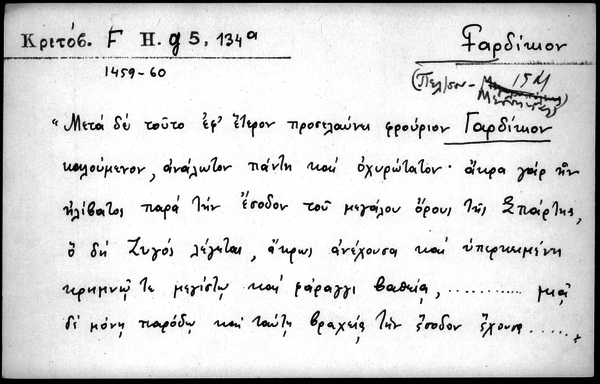 Κριτόβ. F H. g 5, 134a
Γαρδίκιον
1459-60
(Πελ/σου - 
Μεσσηνίας)
“Μετά δέ τοῦτο ἐφ' ἕτερον προσελαύνει φρούριον Γαρδίκιον
καλούμενον, ἀνάλωτον πάντῃ καί ὀχυρώτατον· ἄκρα γάρ ἦν
ἠλίβατος παρά τήν ἔσοδον τοῦ μεγάλου ὄρους τῆς Σπάρτης,
ὅ δή Ζυγός λέγεται, ἄκρως ἀνέχουσα καί ὑπερκειμένη
κρημνῷ τε μεγίστῳ καί φάραγγι βαθείᾳ, ............ μιᾷ
δέ μόνῃ παρόδῳ καί ταύτῃ βραχείᾳ τήν ἔσοδον ἔχουσα......,